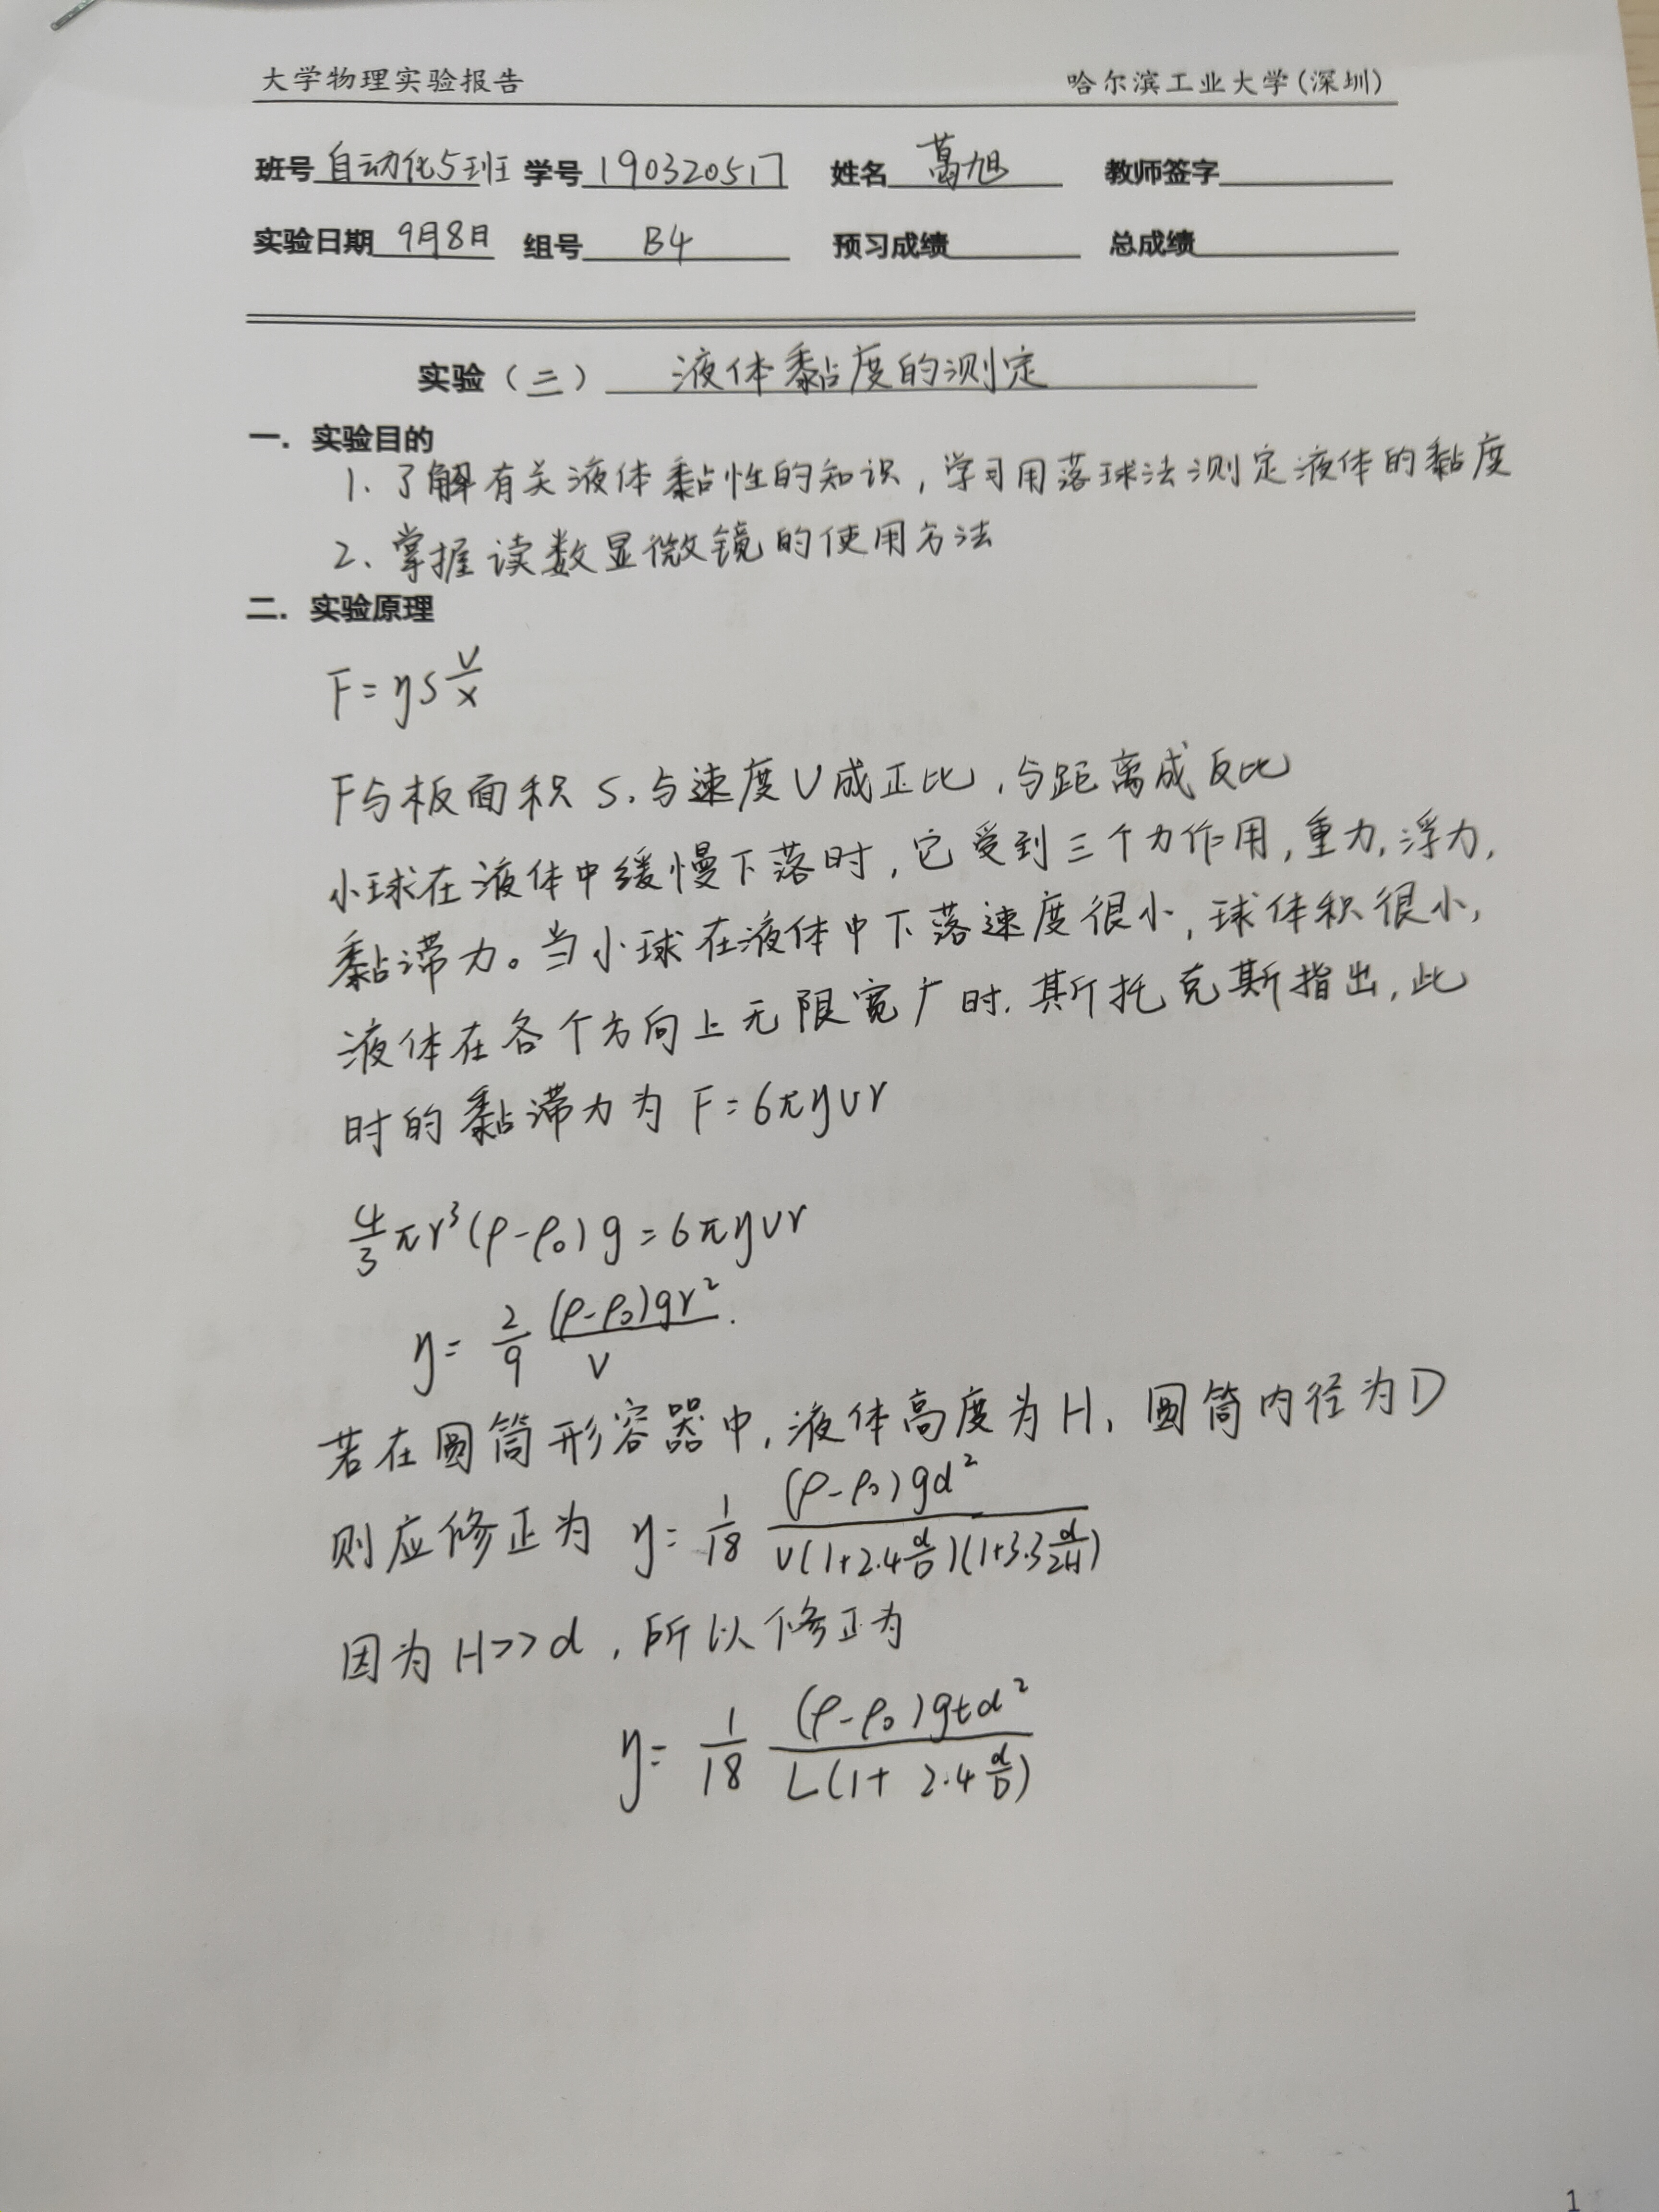 大学物理实验报告 哈尔滨工业大学(深圳)
班号 自动化5班 学号 190320517 姓名 葛旭 教师签字
实验日期 9月8日 组号 B4 预习成绩 总成绩
实验(三) 液体黏度的测定
一. 实验目的
1. 了解有关液体黏性的知识,学习用落球法测定液体的黏度
2、掌握读数显微镜的使用方法
二. 实验原理
F=ηS v/x
F与板面积 S、与速度 v 成正比,与距离成反比
小球在液体中缓慢下落时,它受到三个力作用,重力,浮力,
黏滞力。当小球在液体中下落速度很小,球体积很小,
液体在各个方向上无限宽广时,斯托克斯指出,此
时的黏滞力为 F=6πηvr
4/3 πr³(ρ-ρ₀)g=6πηvr
η= 2/9 (ρ-ρ₀)gr²/v.
若在圆筒形容器中,液体高度为H,圆筒内径为D
则应修正为 η= 1/18 (ρ-ρ₀)gd²/v(1+2.4 d/D)(1+3.3 d/2H)
因为 H>>d,所以修正为
η= 1/18 (ρ-ρ₀)gtd²/L(1+2.4 d/D)
1